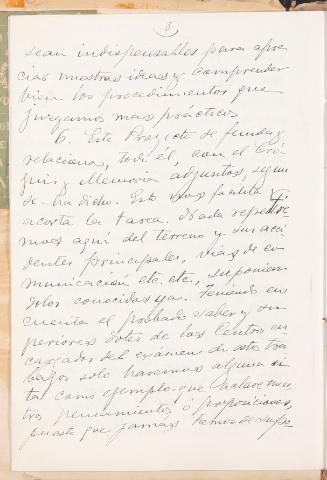 3
sean indispensables para apre-
ciar nuestras ideas y comprender
bien los procedimientos que
juzgamos mas prácticos
6. Este Proyecto se funda y
relaciona, todo él, con el Cró-
quis y Memoria adjuntos, segun
se ha dicho. Esto nos facilita y
acorta la tarea. Nada repetire-
mos aquí del terreno y sus acci-
dentes principales, vias de co-
municación etc. etc., suponien-
dolos conocidos ya. Teniendo en
cuenta el probado saber y su-
periores dotes de los Centros en-
cargados del exámen de estos tra-
bajos solo haremos alguna ci-
ta como ejemplo que aclare nues-
tros pensamientos ó proposiciones,
puesto que jamás hemos de